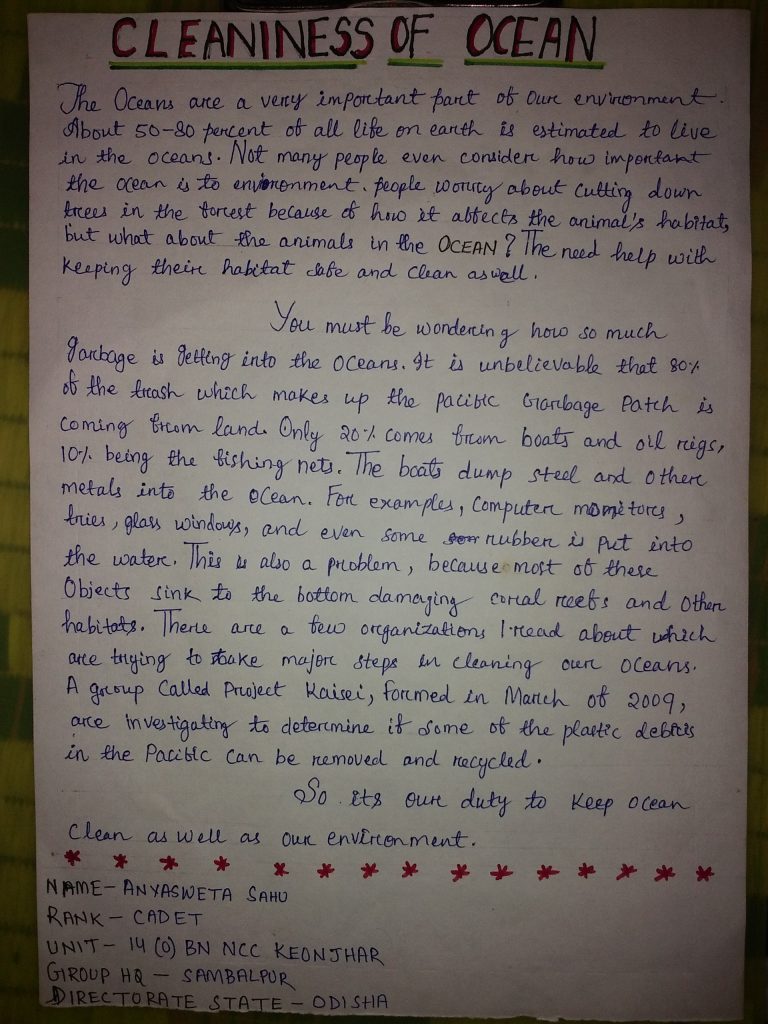 CLEANINESS OF OCEAN
The Oceans are a very important part of our environment.
About 50-80 percent of all life on earth is estimated to live
in the oceans. Not many people even consider how important
the ocean is to environment. people worry about cutting down
trees in the forest because of how it affects the animal's habitat,
but what about the animals in the OCEAN? The need help with
keeping their habitat safe and clean aswell.
You must be wondering how so much
garbage is getting into the oceans. It is unbelievable that 80%
of the trash which makes up the pacific Garbage Patch is
coming from land. Only 20% comes from boats and oil rigs,
10% being the fishing nets. The boats dump steel and other
metals into the ocean. For examples, computer monitors,
tries, glass windows, and even some rubber is put into
the water. This is also a problem, because most of these
Objects sink to the bottom damaging corial reefs and other
habitats. There are a few organizations I read about which
are trying to take major steps in cleaning our oceans.
A group Called Project Kaisei, formed in March of 2009,
are investigating to determine if some of the plastic debris
in the Pacific can be removed and recycled.
So its our duty to keep ocean
clean as well as our environment.
NAME- ANYASWETA SAHU
RANK- CADET
UNIT- 14 (O) BN NCC KEONJHAR
GROUP HQ - SAMBALPUR
DIRECTORATE STATE - ODISHA